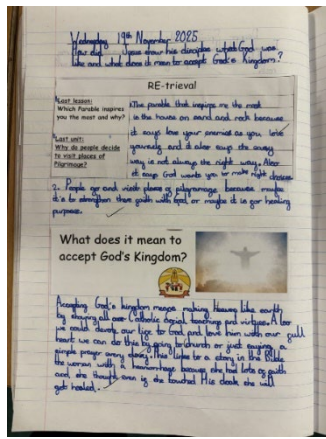 Wednesday 19th November 2025
How did Jesus show his disciples what God was
like and what does it mean to accept God's Kingdom?
RE-trieval
Last lesson:
Which Parable inspires
you the most and why?
Last unit:
Why do people decide
to visit places of
Pilgrimage?
The parable that inspires me the most
is the house on sand and rock because
it says love your enemies as you, love
yourself and it also says the easy
way is not always the right way. Also
it says God wants you to make right choices
2. People go and visit places of pilgrimage because maybe
it's to strengthen their faith with God, or maybe it is for healing
purposes.
What does it mean to
accept God's Kingdom?
Accepting God's kingdom means making Heaven like earth
by showing all our Catholic Social teachings and virtues. Also
we could devote our life to God and love him with our full
heart we can do this by going to church or just saying a
simple prayer every day. This links to a story in the Bible
the woman with a haemorrhage because she had lots of faith
and she thought even if she touched His cloak she will
get healed.